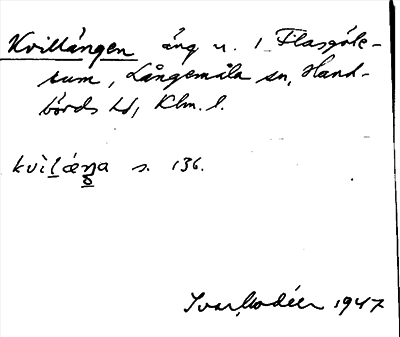 Kvillängen äng u. 1 Flasgöle-
rum, Långemåla sn, Hand-
börds hd, Klm. l.
kvìlæŋa s. 136.
Ivar Modéer 1947